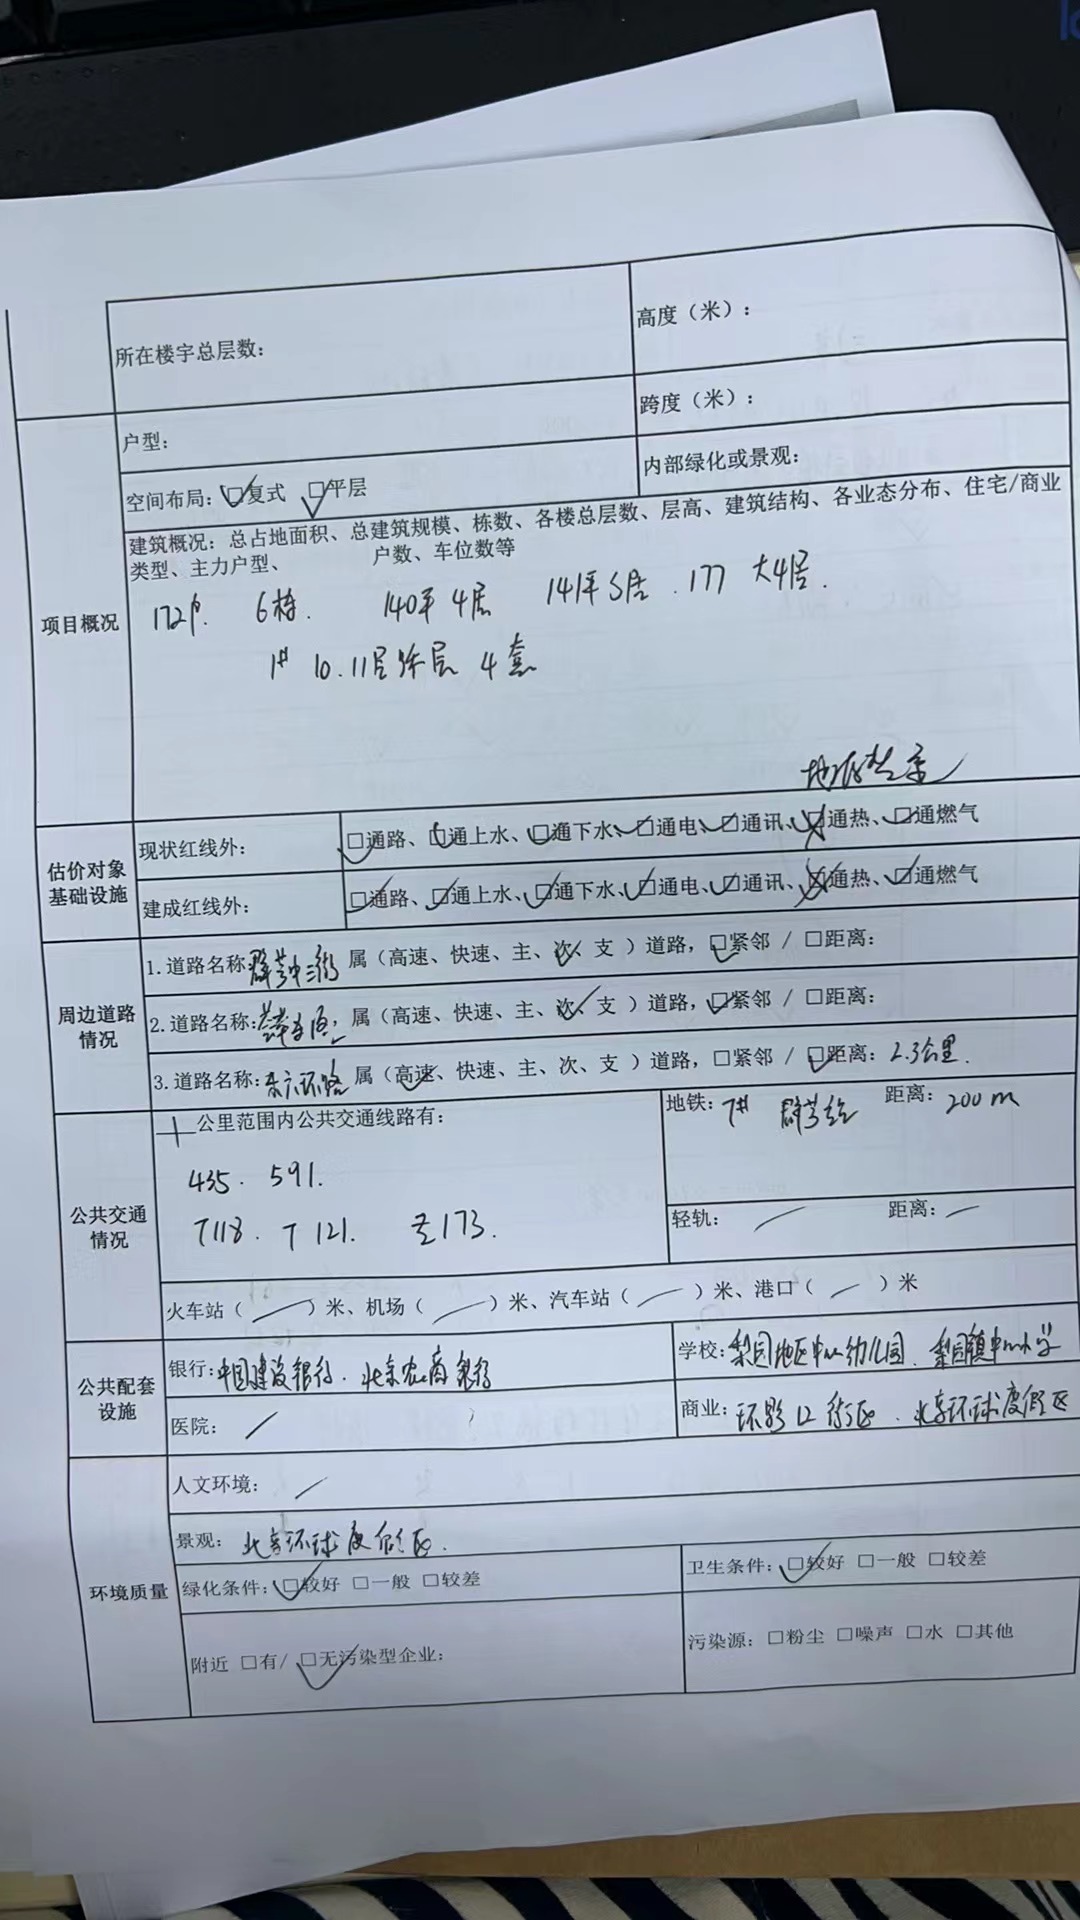 所在楼宇总层数:
高度（米）:
跨度（米）:
户型:
内部绿化或景观:
空间布局: ☑复式 ☑平层
项目概况
建筑概况: 总占地面积、总建筑规模、栋数、各楼总层数、层高、建筑结构、各业态分布、住宅/商业
类型、主力户型、 户数、车位数等
172户. 6栋. 140平4居 141平5居. 177 大4居.
1# 10.11层 层 4套
估价对象
基础设施
现状红线外: ☑通路、☑通上水、☑通下水、☑通电、☑通讯、☒通热、☑通燃气
建成红线外: ☑通路、☑通上水、☑通下水、☑通电、☑通讯、☒通热、☑通燃气
周边道路
情况
1.道路名称 群芳中三街 属（高速、快速、主、次✓、支 ）道路，☑紧邻 / □距离:
2.道路名称: 属（高速、快速、主、次✓、支 ）道路，☑紧邻 / □距离:
3.道路名称: 东六环路 属（高速✓、快速、主、次、支 ）道路，□紧邻 / ☑距离: 2.3公里.
公共交通
情况
公里范围内公共交通线路有:
435. 591.
T118. T121. 173.
地铁: 7# 群芳站 距离: 200m
轻轨: / 距离: /
火车站（ / ）米、机场（ / ）米、汽车站（ / ）米、港口（ / ）米
公共配套
设施
银行: 中国建设银行. 北京农商银行
学校: 梨园地区中心幼儿园. 梨园镇中心小学
医院: /
商业: 环影口街区. 北京环球度假区
环境质量
人文环境: /
景观: 北京环球度假区.
绿化条件: ☑较好 □一般 □较差
卫生条件: ☑较好 □一般 □较差
附近 □有/ ☑无污染型企业:
污染源: □粉尘 □噪声 □水 □其他